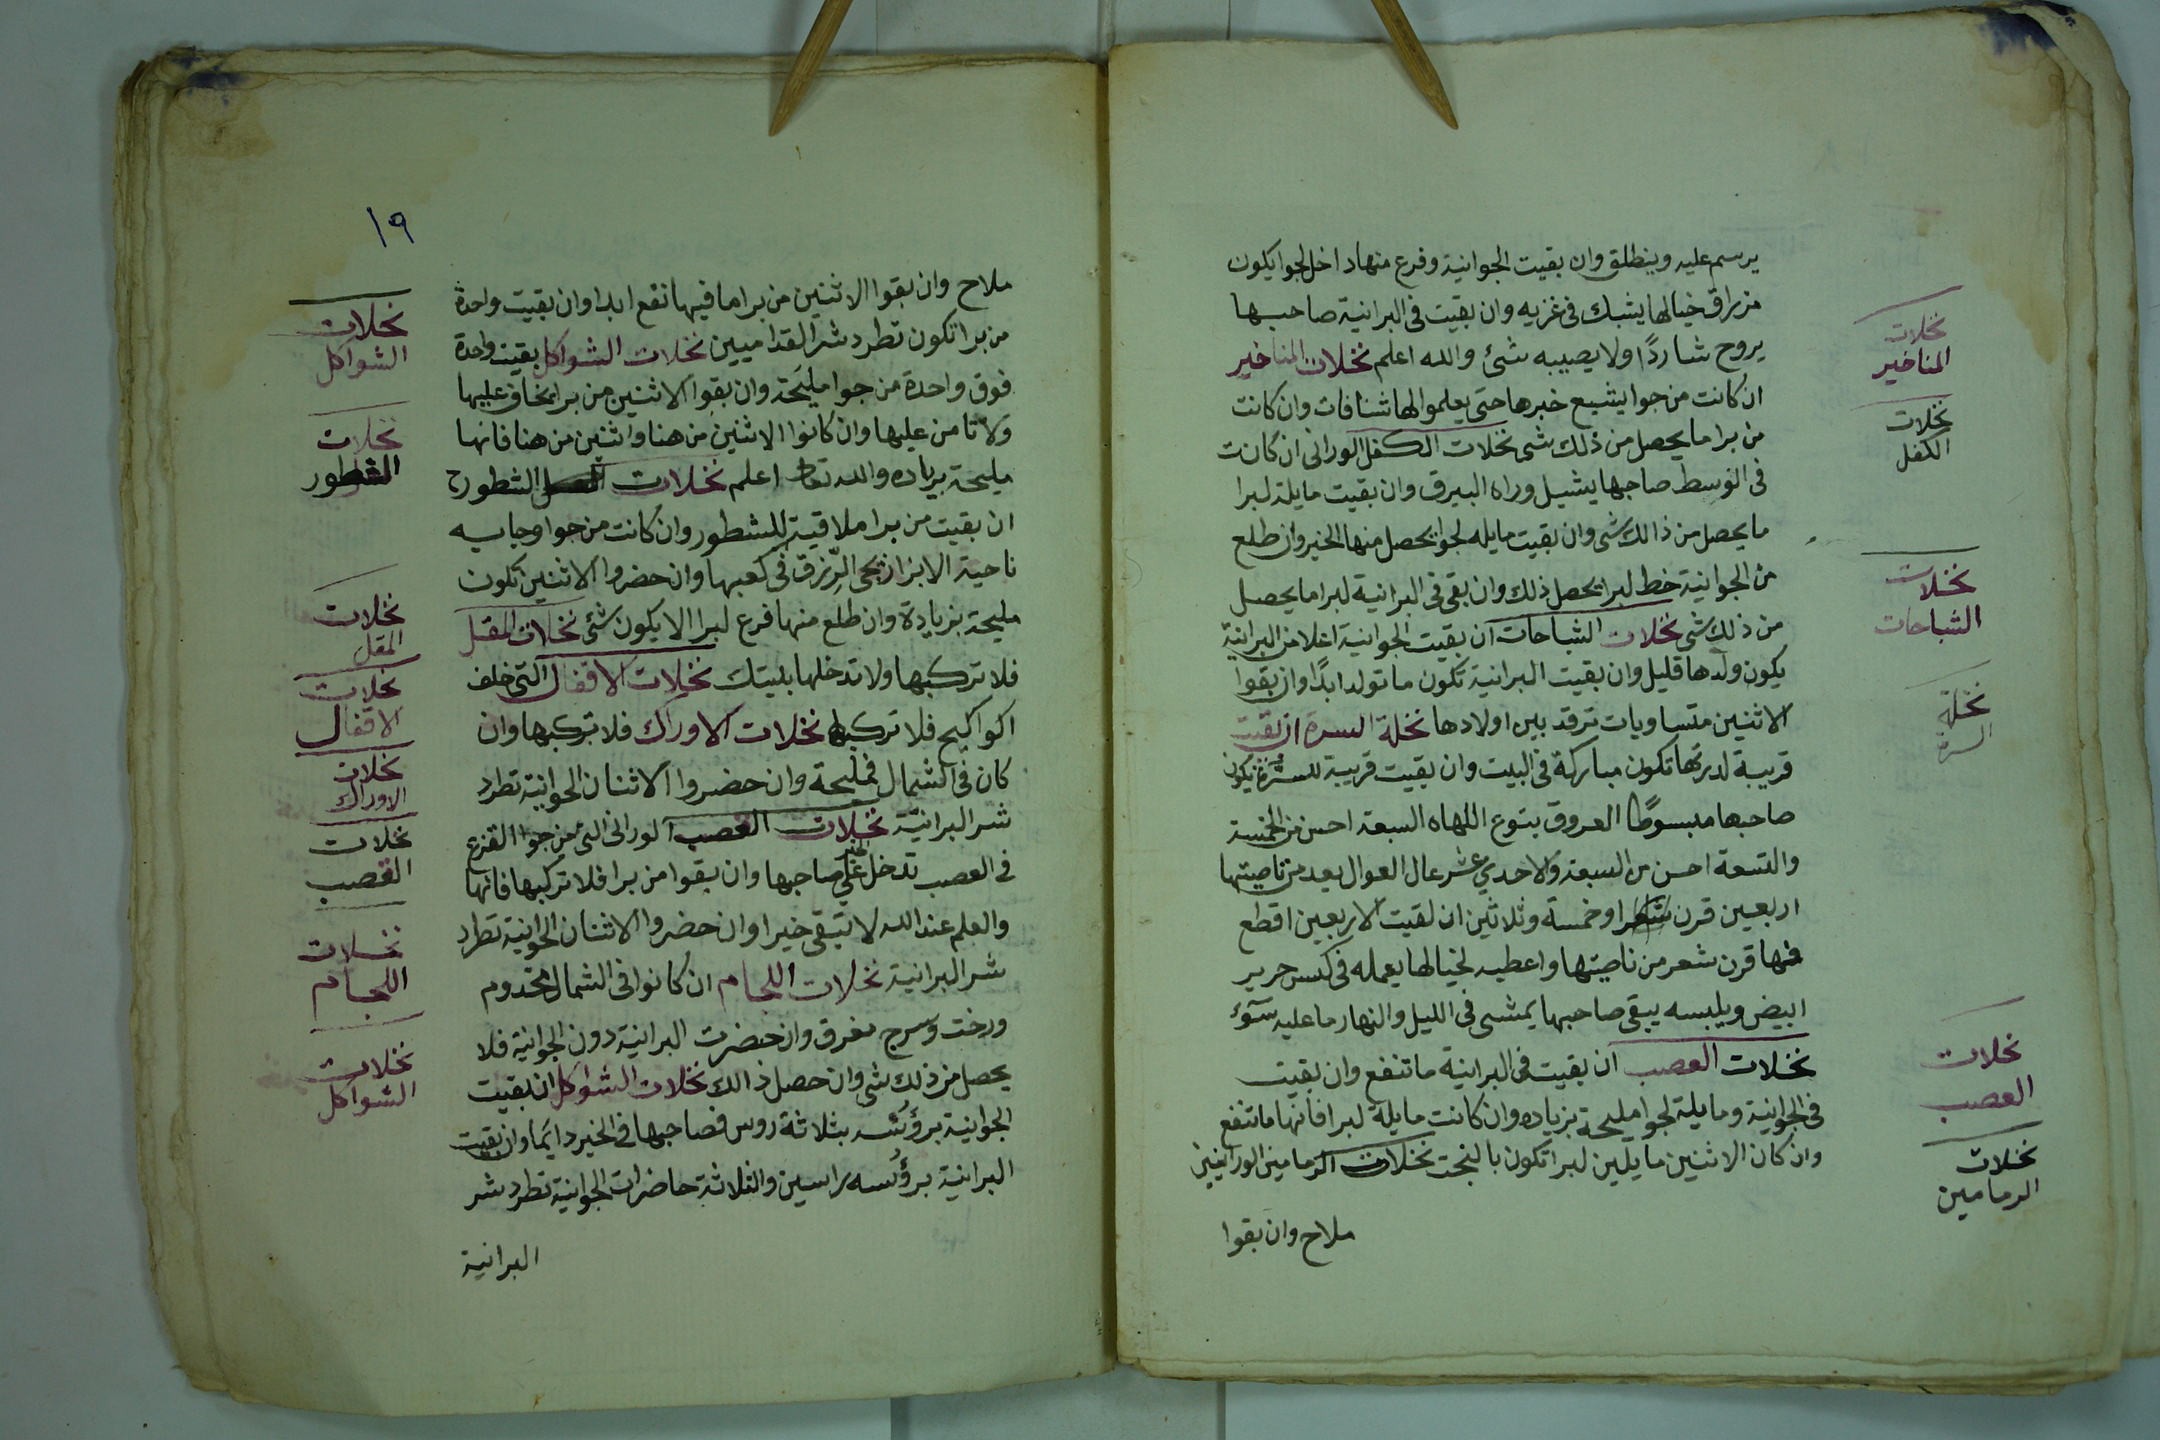 يرسم عليه وينطلق وان بقيت الجوانية وفرع منها داخل لجوا يكون
من براق خيالها يشبك في غزيه وان بقيت في البرانية صاحبها
يروح شاردًا ولا يصيبه شئ والله اعلم نخلات المناخير
ان كانت من جوا يشيع خبرها حتى يعلموا لها شنافات وان كانت
من برا ما يحصل من ذلك شى نخلات الكفل الورانى ان كانت
في الوسط صاحبها يشيل وراه البيرق وان بقيت مايلة لبرا
ما يحصل من ذالك شى وان بقيت مايله لجوا يحصل منها الخير وان طلع
من الجوانية خط لبرا يحصل ذلك وان بقى في البرانية لبرا ما يحصل
من ذلك شى نخلات الشباحات ان بقيت الجوانية اعلا من البرانية
يكون ولدها قليل وان بقيت البرانية تكون ما تولد ابدًا وان بقوا
الاثنين متساويات ترقد بين اولادها نخلة السرة ان بقيت
قريبة لدرتها تكون مباركة في البيت وان بقيت قريبة للسرة يكون
صاحبها مبسوطًا العروق بتوع اللهاه السبعة احسن من الخمسة
والتسعة احسن من السبعة والاحدي عشر عال العوال يعد من ناصيتها
اربعين قرن شعر او خمسة وثلاثين ان لقيت الاربعين اقطع
منها قرن شعر من ناصيتها واعطيه لخيالها يعمله في كيس حرير
ابيض ويلبسه يبقى صاحبها يمشى في الليل والنهار ما عليه سوٓء
نخلات العصب ان بقيت في البرانية ما تنفع وان بقيت
في الجوانية ومايلة لجوا مليحة بزياده وان كانت مايلة لبرا فانها ما تنفع
وان كان الاثنين مايلين لبرا تكون بالنجت نخلات الرمامين الورانيين
ملاح وان بقوا
نخلات
المناخير
نخلات
الكفل
نخلات
الشباحات
نخلة
السرة
نخلات
العصب
نخلات
الرمامين
١٩
ملاح وان بقوا الاثنين من برا ما فيها نفع ابدا وان بقيت واحدة
من برا تكون تطرد شر القداميين نخلات الشواكل بقيت واحدة
فوق واحدة من جوا مليحة وان بقوا الاثنين من برا يخاف عليها
ولا تامن عليها وان كانوا الاثنين من هنا واثنين من هنا فانها
مليحة بزياده والله تعالى اعلم نخلات الشطور
ان بقيت من برا ملاقية للشطور وان كانت من جوا وجايه
ناحية الابزاز يجى الرزق في كعبها وان حضروا الاثنين تكون
مليحة بزيادة وان طلع منها فرع لبرا لا يكون شئ نخلات المقل
فلا تركبها ولا تدخلها بليتك نخلات الاقفال التى خلف
اكواكيح فلا تركبها نخلات الاوراك فلا تركبها وان
كان في الشمال فمليحة وان حضروا الاثنان الجوانية تطرد
شر البرانية نخلات القصب الورانى التى من جوا القزع
في العصب تدخل الخير على صاحبها وان بقوا من برا فلا تركبها فانها
والعلم عند الله لا تبقى خيرا وان حضروا الاثنان الجوانية تطرد
شر البرانية نخلات اللجام ان كانوا في الشمال مخدوم
ورخت وسرج مغرق وان حضرت البرانية دون الجوانية فلا
يحصل من ذلك شى وان حصل ذالك نخلات الشواكل ان بقيت
الجوانية برؤسه بثلاثة روس فصاحبها في الخير دايما وان بقيت
البرانية برؤسه براسين والثلاثة حاضرات الجوانية تطرد شر
البرانية
نخلات
الشواكل
نخلات
الشطور
نخلات
المقل
نخلات
الاقفال
نخلات
الاوراك
نخلات
القصب
نخلات
اللجام
نخلات
الشواكل